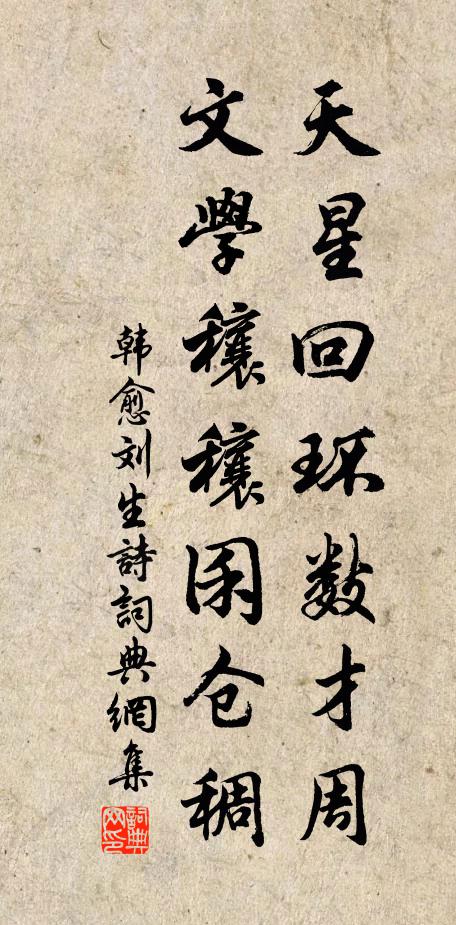 天星回环数才周
文學穰穰囷仓稠
韩愈刘生詩詞典網集
詞典網印